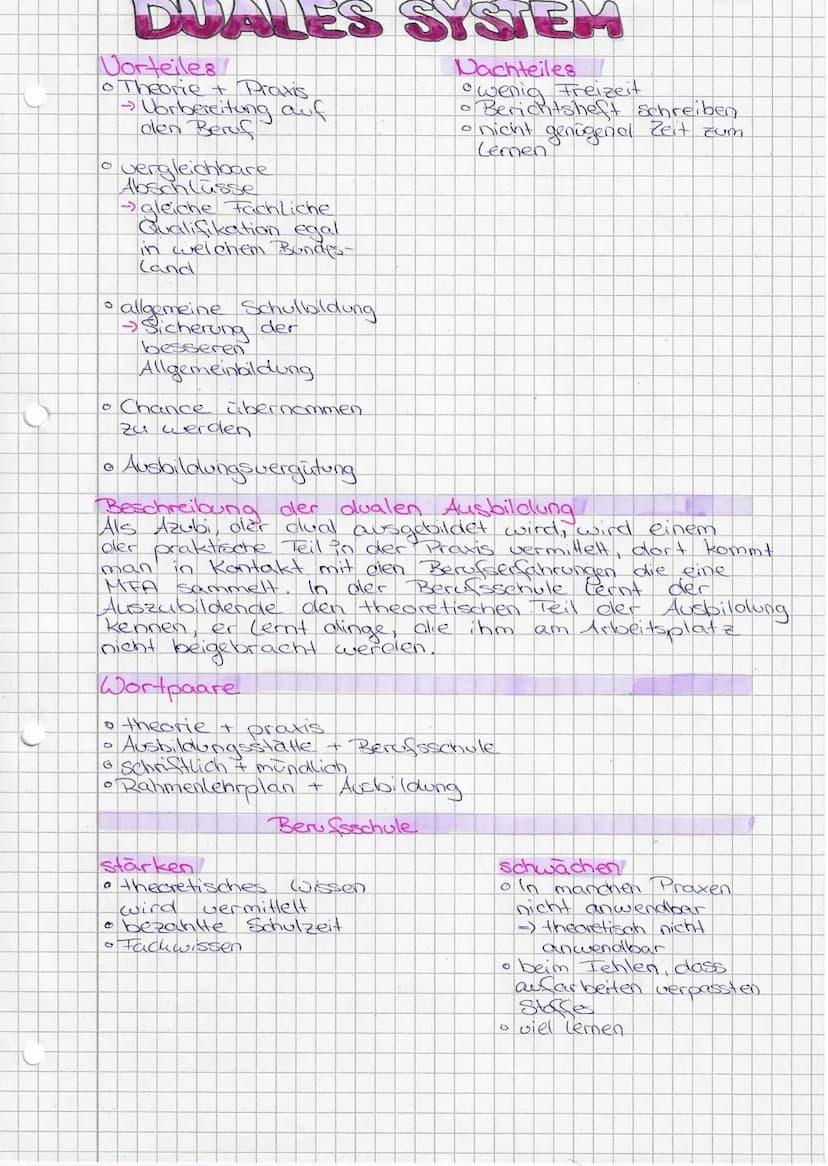 DUALES SYSTEM
Vorteiles
o Theorie + Praxis
→ Vorbereitung auf
den Beruf
o vergleichbare
Abschlüsse
→ gleiche Fachliche
Qualifikation egal
in welchem Bundes-
Land
o allgemeine Schulbildung
→ Sicherung der
besseren
Allgemeinbildung
o Chance übernommen
zu werden
o Ausbildungsvergütung
Nachteiles
o wenig Freizeit
o Berichtsheft schreiben
o nicht genügend Zeit zum
Lernen
Beschreibung der dualen Ausbildung
Als Azubi, der dual ausgebildet wird, wird einem
der praktische Teil in der Praxis vermittelt, dort kommt
man in Kontakt mit den Berufserfahrungen die eine
MFA sammelt. In der Berufsschule lernt der
Auszubildende den theoretischen Teil der Ausbildung
kennen, er lernt dinge, die ihm am Arbeitsplatz
nicht beigebracht werden.
Wortpaare
o theorie + praxis
o Ausbildungsstätte + Berufsschule
o schriftlich + mündlich
o Rahmenlehrplan + Ausbildung
Berufsschule
stärken
o theoretisches Wissen
wird vermittelt
o bezahlte Schulzeit
o Fachwissen
schwächen
o In manchen Praxen
nicht anwendbar
→ theoretisch nicht
anwendbar
o beim Fehlen, dass
aufarbeiten verpassten
Stoffes
o viel lernen